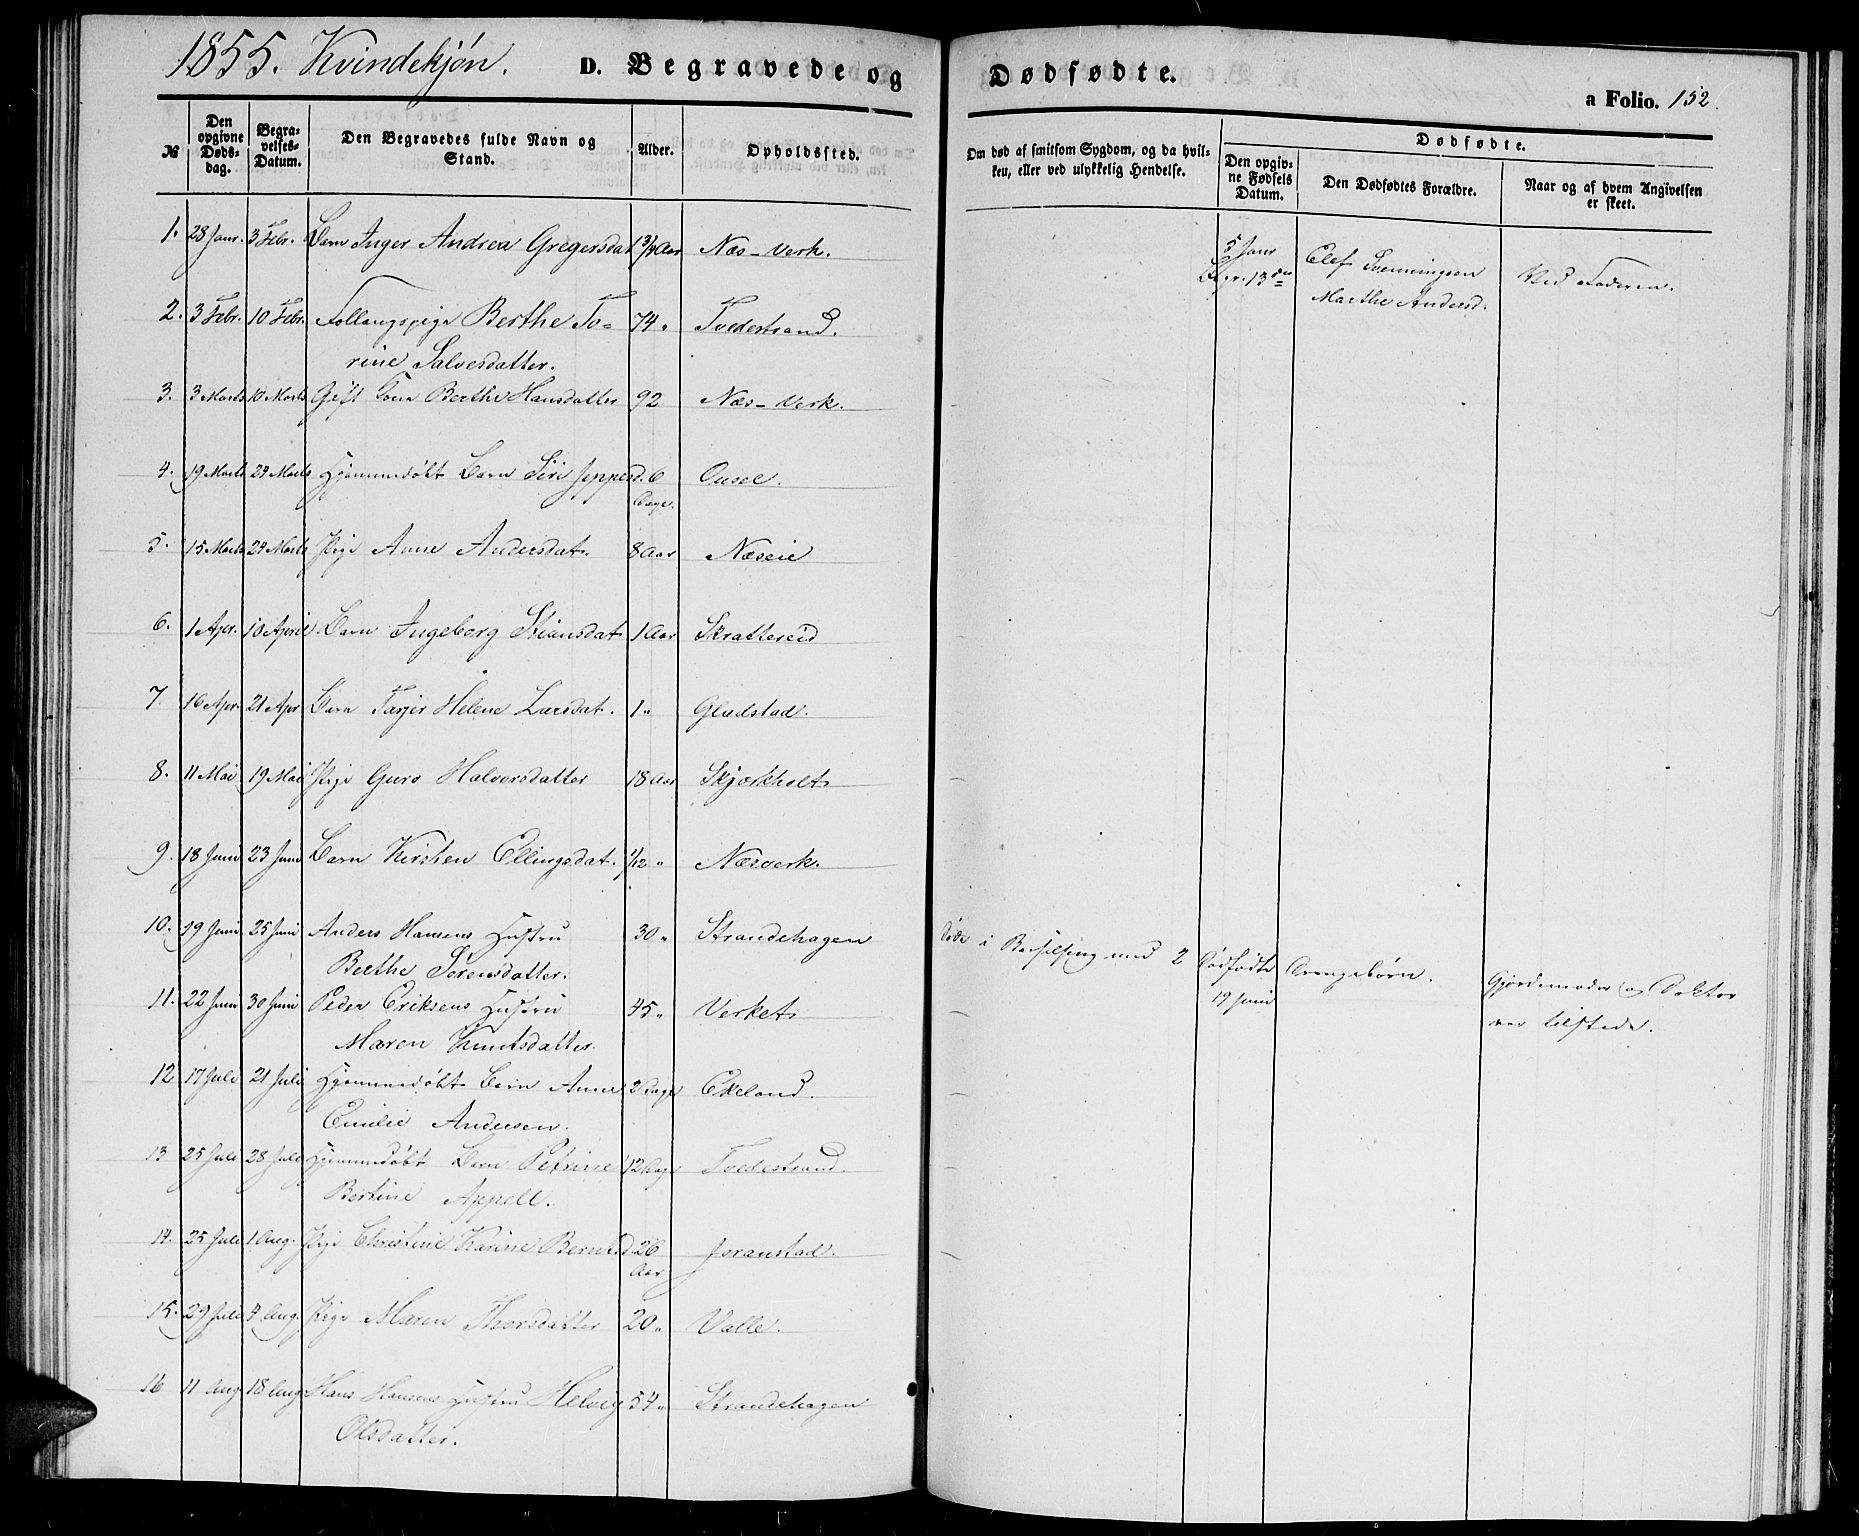 1855. Kvindekjön. D. Begravede og Dødfødte.
a Folio. 152.
№
Den opgivne Døds-dag.
Begra-velses-Datum.
Den Begravedes fulde Navn og Stand.
Alder.
Opholdssted.
Om død af smitsom Sygdom, og da hvil-
ken, eller ved ulykkelig Hendelse.
Dødfødte.
Den opgiv-ne Fødsels Datum.
Den Dødfødtes Forældre.
Naar og af hvem Angivelsen er skeet.
1. 28 Janr. 3 Febr. Barn Inger Andrea Gregersdat 1 3/4 Aar Næs-Verk.
5 Janr Begr. 13de
Olef Svenningsen
Marthe Andersd.
Ved Faderen.
2. 3 Febr. 10 Febr. Follaugspige Berthe To-
rine Salvesdatter. 74 " Tvedestrand.
3. 3 Marts 10 Marts Gift Kone Berthe Hansdatter 92 Næs-Verk.
4. 19 Marts 24 Marts Hjemmedøbt Barn Siri Jeppesd. 6 Dage.
5. 15 Marts 24 Marts Pige Anne Andersdat. 8 Aar Næseie
6. 1 Apr. 10 April Barn Ingeborg Stiansdat 1 Aar Skrattereid
7. 16 Apr. 21 Apr Barn Tarjer Helene Larsdat. 1 " Gladstad.
8. 11 Mai 19 Mai Pige Guro Halvorsdatter 18 Aar Skjerkholt
9. 18 Juni 23 Juni Barn Kirsten Ellingsdat. 1/12 " Næsverk.
10. 19 Juni 25 Juni Anders Hansens Hustru
Berthe Sørensdatter. 30 " Strandehagen
Døde i Barselseng med 2 Dødfødte Drengebørn.
19 Juni
Gjordemoder og Doktor
var tilstede.
11. 22 Juni 30 Juni Peder Eriksens Hustru
Maren Knutsdatter. 45 " Verket
12 17 Juli 21 Juli Hjemmedøbt Barn Anne
Emilie Andersen. 2 Dage Ekeland.
13 25 Juli 28 Juli Hjemmedøbt Barn Petrine
Bertine Appell. 12 Dage Tvedestrand.
14. 25 Juli 1 Aug. Pige Christine Karine Berntsd 26 Aar Joranstad.
15. 29 Juli 4 Aug. Pige Maren Thorsdatter 20 " Valle.
16 11 Aug 18 Aug Hans Hansens Hustru Helvig
Olsdatter. 54 " Strandehagen